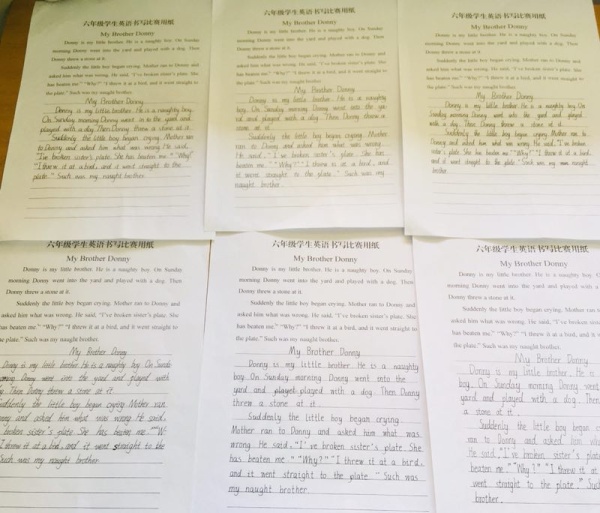 六年级学生英语书写比赛用纸
My Brother Donny
Donny is my little brother. He is a naughty boy. On Sunday
morning Donny went into the yard and played with a dog. Then
Donny threw a stone at it.
Suddenly the little boy began crying. Mother ran to Donny and
asked him what was wrong. He said, "I've broken sister's plate. She
has beaten me." "Why?" "I threw it at a bird, and it went straight to
the plate." Such was my naught brother.
My Brother Donny
Donny is my little brother. He is a naughty boy.
On Sunday morning Donny went in to the yard and
played with a dog. Then Donny threw a stone at it.
Suddenly the little boy began crying. Mother ran
to Donny and asked him what was wrong. He said,
"I've broken sister's plate. She has beaten me." "Why?"
"I threw it at a bird, and it went straight to the
plate." Such was my naught brother.
六年级学生英语书写比赛用纸
My Brother Donny
Donny is my little brother. He is a naughty boy. On Sunday
morning Donny went into the yard and played with a dog. Then
Donny threw a stone at it.
Suddenly the little boy began crying. Mother ran to Donny and
asked him what was wrong. He said, "I've broken sister's plate. She
has beaten me." "Why?" "I threw it at a bird, and it went straight to
the plate." Such was my naught brother.
My Brother Donny
Donny is my little brother. He is a naughty
boy. On Sunday morning Donny went into the
and played with a dog. Then Donny threw a
stone at it.
Suddenly the little boy began crying. Mother
ran to Donny and asked him what was wrong.
He said, "I've broken sister's plate. She has
beaten me." "Why?" "I threw it at a bird, and
it went straight to the plate." Such was my
naught brother.
六年级学生英语书写比赛用纸
My Brother Donny
Donny is my little brother. He is a naughty boy. On Sunday
morning Donny went into the yard and played with a dog. Then
Donny threw a stone at it.
Suddenly the little boy began crying. Mother ran to Donny and
asked him what was wrong. He said, "I've broken sister's plate. She
has beaten me." "Why?" "I threw it at a bird, and it went straight to
the plate." Such was my naught brother.
My Brother Donny
Donny is my little brother. He is a naughty boy. On
Sunday morning Donny went into the yard and played
with a dog. Then Donny threw a stone at it.
Suddenly the little boy began crying. Mother ran to
Donny and asked him what was wrong. He said, "I've broken
sister's plate. She has beaten me." "Why?" "I threw it at a bird,
and it went straight to the plate." Such was my naught
brother.
六年级学生英语书写比赛用纸
My Brother Donny
Donny is my little brother. He is a naughty boy. On Sunday
morning Donny went into the yard and played with a dog. Then
Donny threw a stone at it.
Suddenly the little boy began crying. Mother ran to Donny and
asked him what was wrong. He said, "I've broken sister's plate. She
has beaten me." "Why?" "I threw it at a bird, and it went straight to
the plate." Such was my naught brother.
My Brother Donny
Donny is my little brother. He is a naughty boy. On Sunda
morning Donny went into the yard and played with
Then Donny threw a stone at it.
Suddenly the little boy began crying. Mother ran
and asked him what was wrong. He said,
broken sister's plate. She has beaten me." "W
I threw it at a bird, and it went straight to the
Such was my naught brother.
六年级学生英语书写比赛用纸
My Brother Donny
Donny is my little brother. He is a naughty boy. On Sunday
morning Donny went into the yard and played with a dog. Then
Donny threw a stone at it.
Suddenly the little boy began crying. Mother ran to Donny and
asked him what was wrong. He said, "I've broken sister's plate. She
has beaten me." "Why?" "I threw it at a bird, and it went straight to
the plate." Such was my naught brother.
My Brother Donny
Donny is my little brother. He is a naughty
boy. On Sunday morning Donny went into the
yard and played with a dog. Then Donny
threw a stone at it.
Suddenly the little boy began crying.
Mother ran to Donny and asked him what was
wrong. He said, "I've broken sister's plate. She
has beaten me." "Why?" "I threw it at a bird,
and it went straight to the plate." Such was
my naught brother.
六年级学生英语书写比赛用纸
My Brother Donny
Donny is my little brother. He is a naughty boy. On
morning Donny went into the yard and played with a dog.
Donny threw a stone at it.
Suddenly the little boy began crying. Mother ran to Donny
asked him what was wrong. He said, "I've broken sister's plate.
has beaten me." "Why?" "I threw it at a bird, and it went straight
the plate." Such was my naught brother.
My Brother Donny
Donny is my little brother. He is
boy. On Sunday morning Donny went
yard and played with a dog. Then
a stone at it.
Suddenly the little boy began c
ran to Donny and asked him what
He said, "I've broken sister's plate
beaten me." "Why?" "I threw it at
went straight to the plate." Suc
brother.